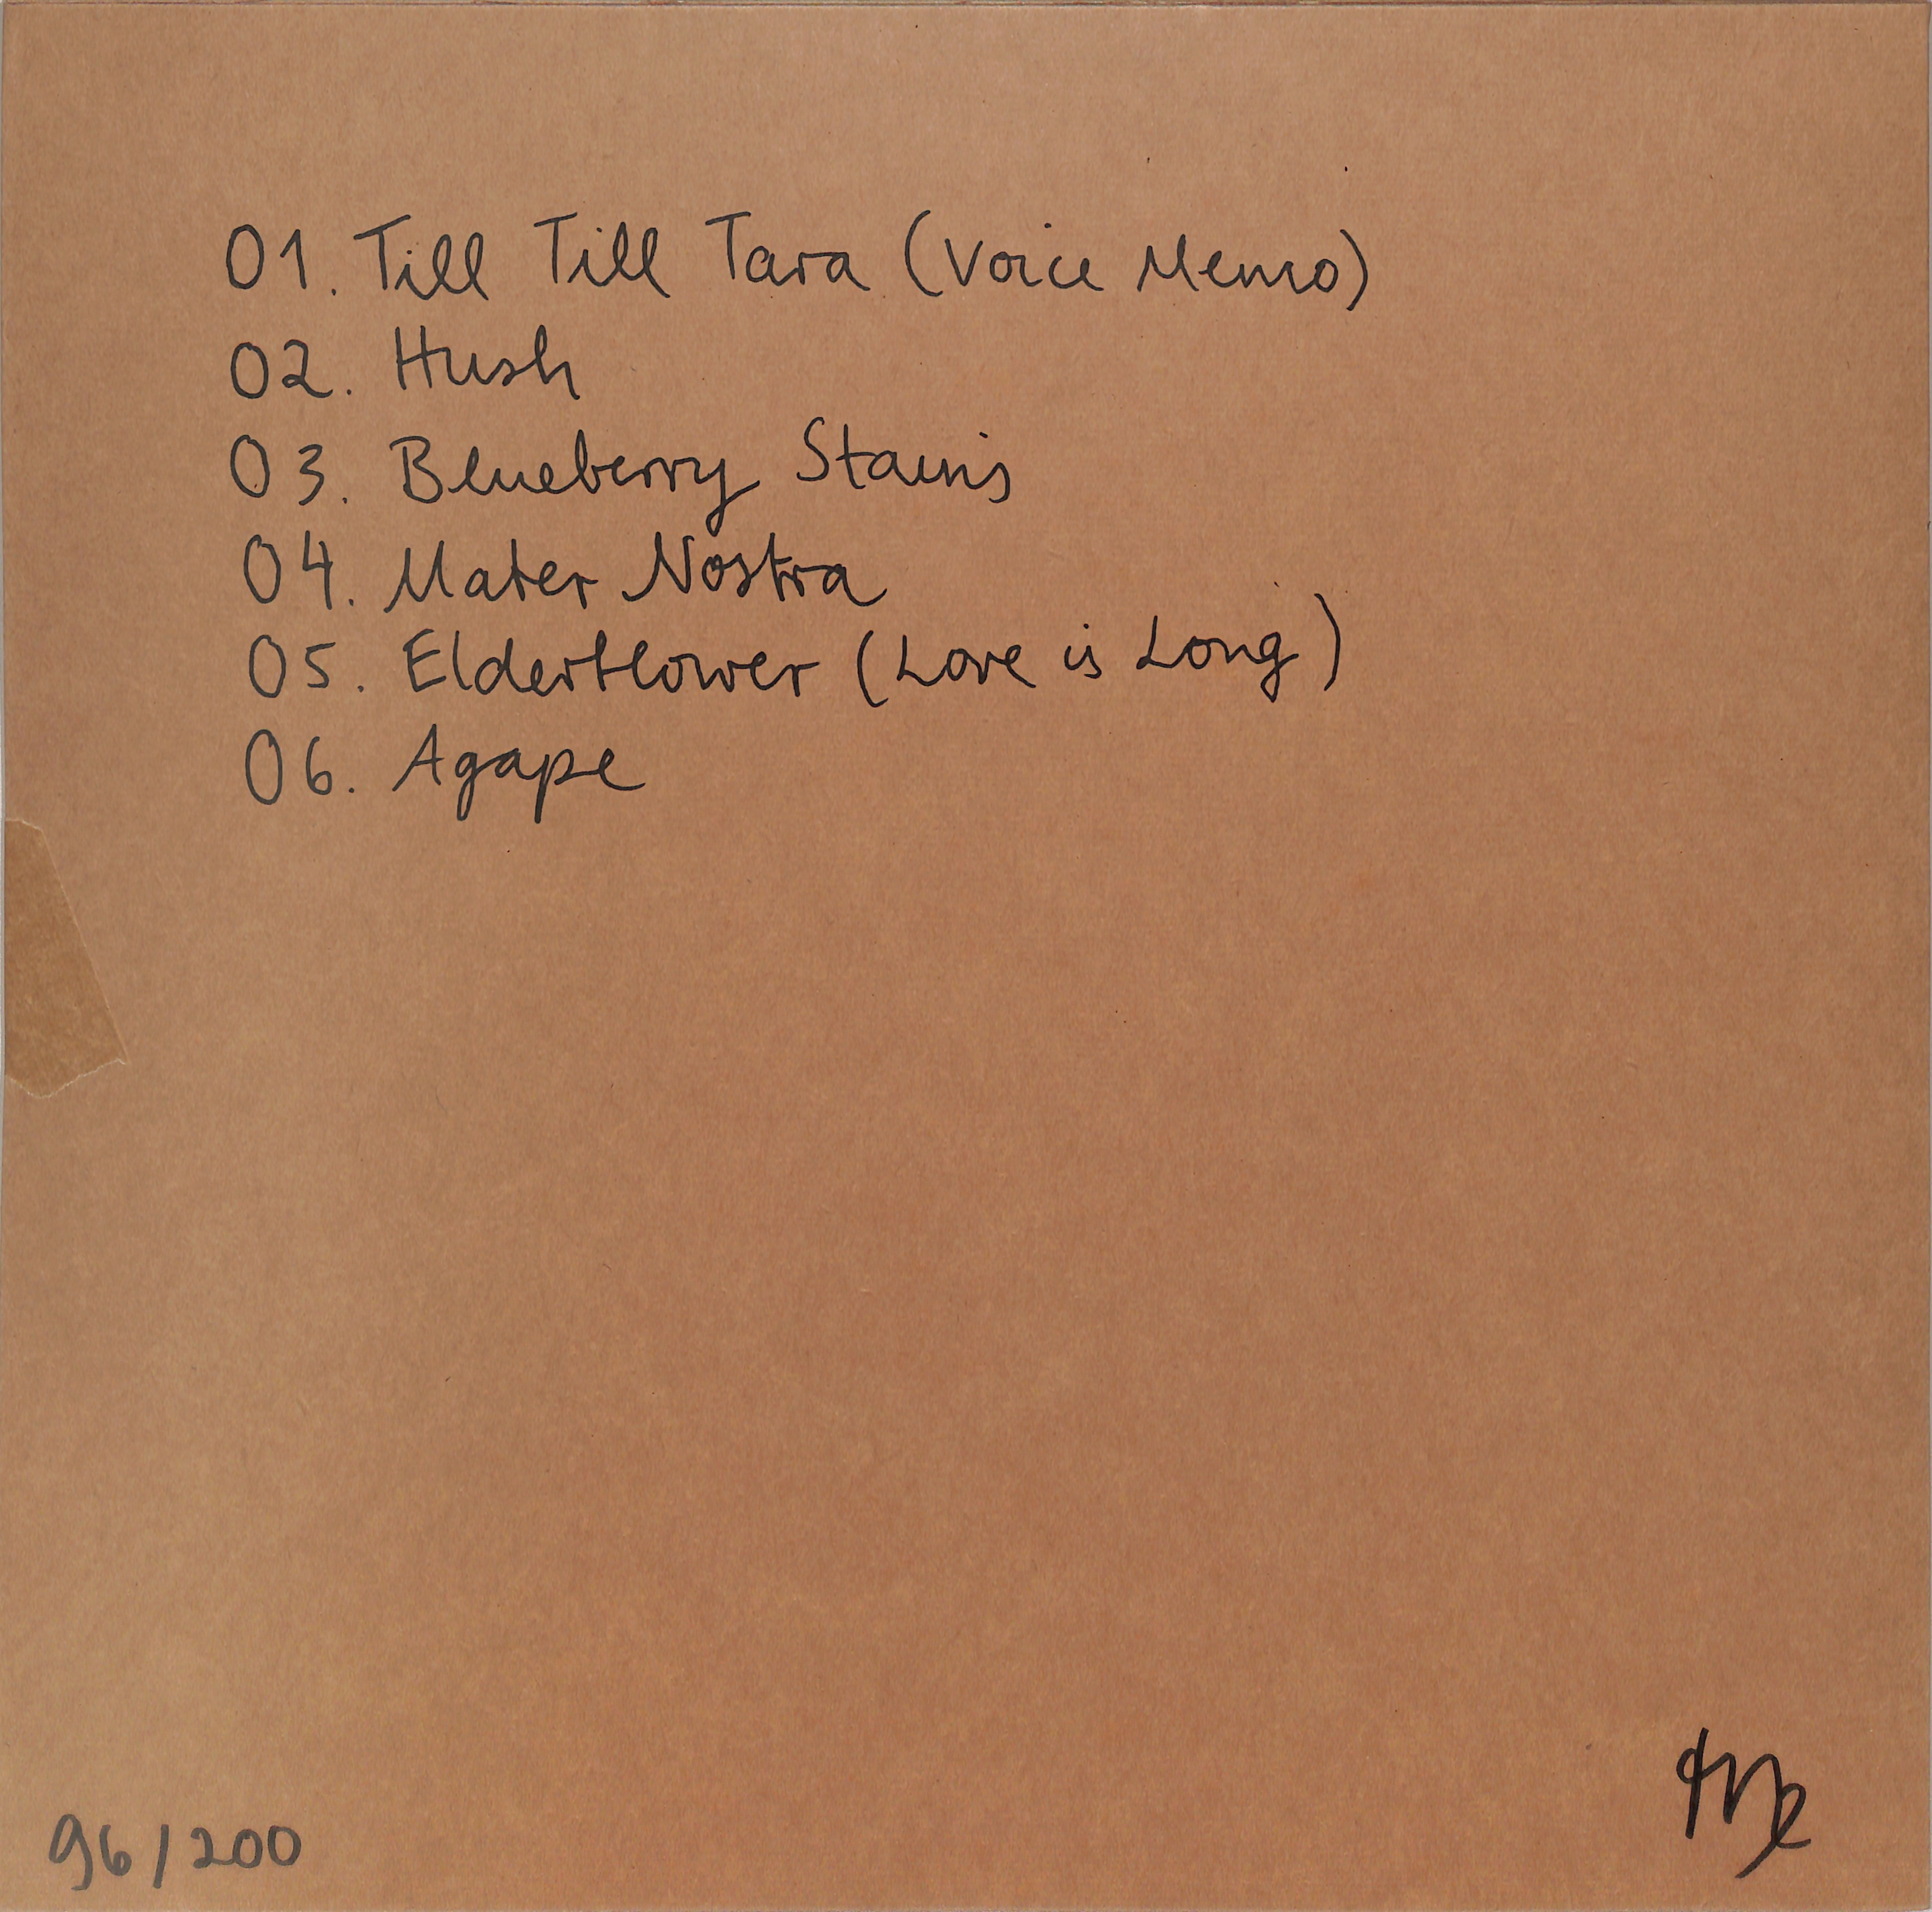 01. Till Till Tara (Voice Memo)
02. Hush
03. Blueberry Stains
04. Mater Nostra
05. Elderflower (Love is Long)
06. Agape
96/200